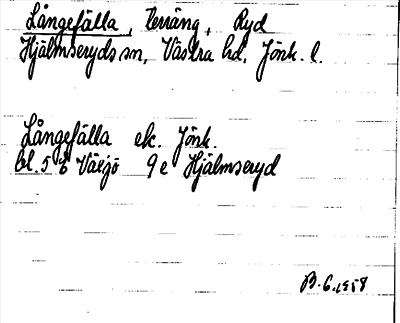 Långefälla, Terräng, Ryd
Hjälmseryds sn, Västra hd, Jönk. l.
Långefälla ek. Jönk.
bl. 5 E Växjö 9 e Hjälmseryd
B. G. 1958